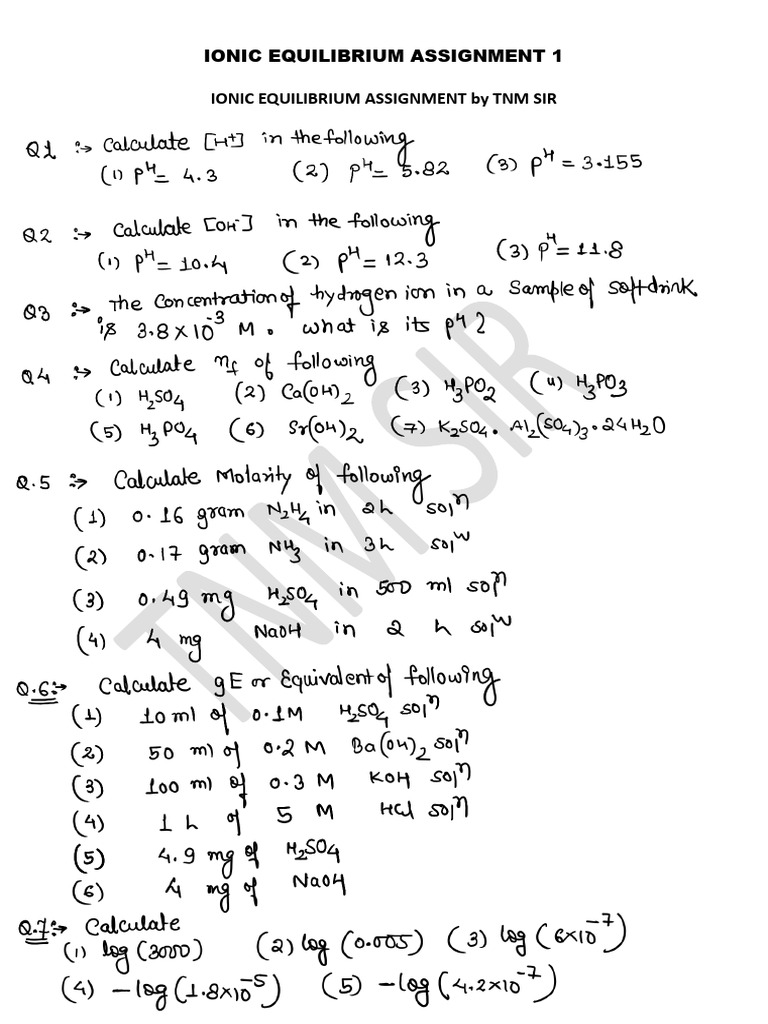 IONIC EQUILIBRIUM ASSIGNMENT 1
IONIC EQUILIBRIUM ASSIGNMENT by TNM SIR
Q1 :→ Calculate [H⁺] in the following
(1) Pᴴ = 4.3 (2) Pᴴ = 5.82 (3) Pᴴ = 3.155
Q2 :→ Calculate [OH⁻] in the following
(1) Pᴴ = 10.4 (2) Pᴴ = 12.3 (3) Pᴴ = 11.8
Q3 :→ The Concentration of hydrogen ion in a Sample of Soft drink
is 3.8×10⁻³ M. What is its Pᴴ?
Q4 :→ Calculate nf of following
(1) H₂SO₄ (2) Ca(OH)₂ (3) H₃PO₂ (4) H₃PO₃
(5) H₃PO₄ (6) Sr(OH)₂ (7) K₂SO₄. Al₂(SO₄)₃.24H₂O
Q.5 :→ Calculate Molarity of following
(1) 0.16 gram N₂H₄ in 2L solⁿ
(2) 0.17 gram NH₃ in 3L solⁿ
(3) 0.49 mg H₂SO₄ in 500 ml solⁿ
(4) 4 mg NaOH in 2 L solⁿ
Q.6 :→ Calculate gE or Equivalent of following
(1) 10 ml of 0.1M H₂SO₄ solⁿ
(2) 50 ml of 0.2 M Ba(OH)₂ solⁿ
(3) 100 ml of 0.3 M KOH solⁿ
(4) 1 L of 5 M HCl solⁿ
(5) 4.9 mg of H₂SO₄
(6) 4 mg of NaOH
Q.7 :→ Calculate
(1) log(3000) (2) log (0.005) (3) log (6×10⁻⁷)
(4) -log(1.8×10⁻⁵) (5) -log(4.2×10⁻⁷)
TNM SIR